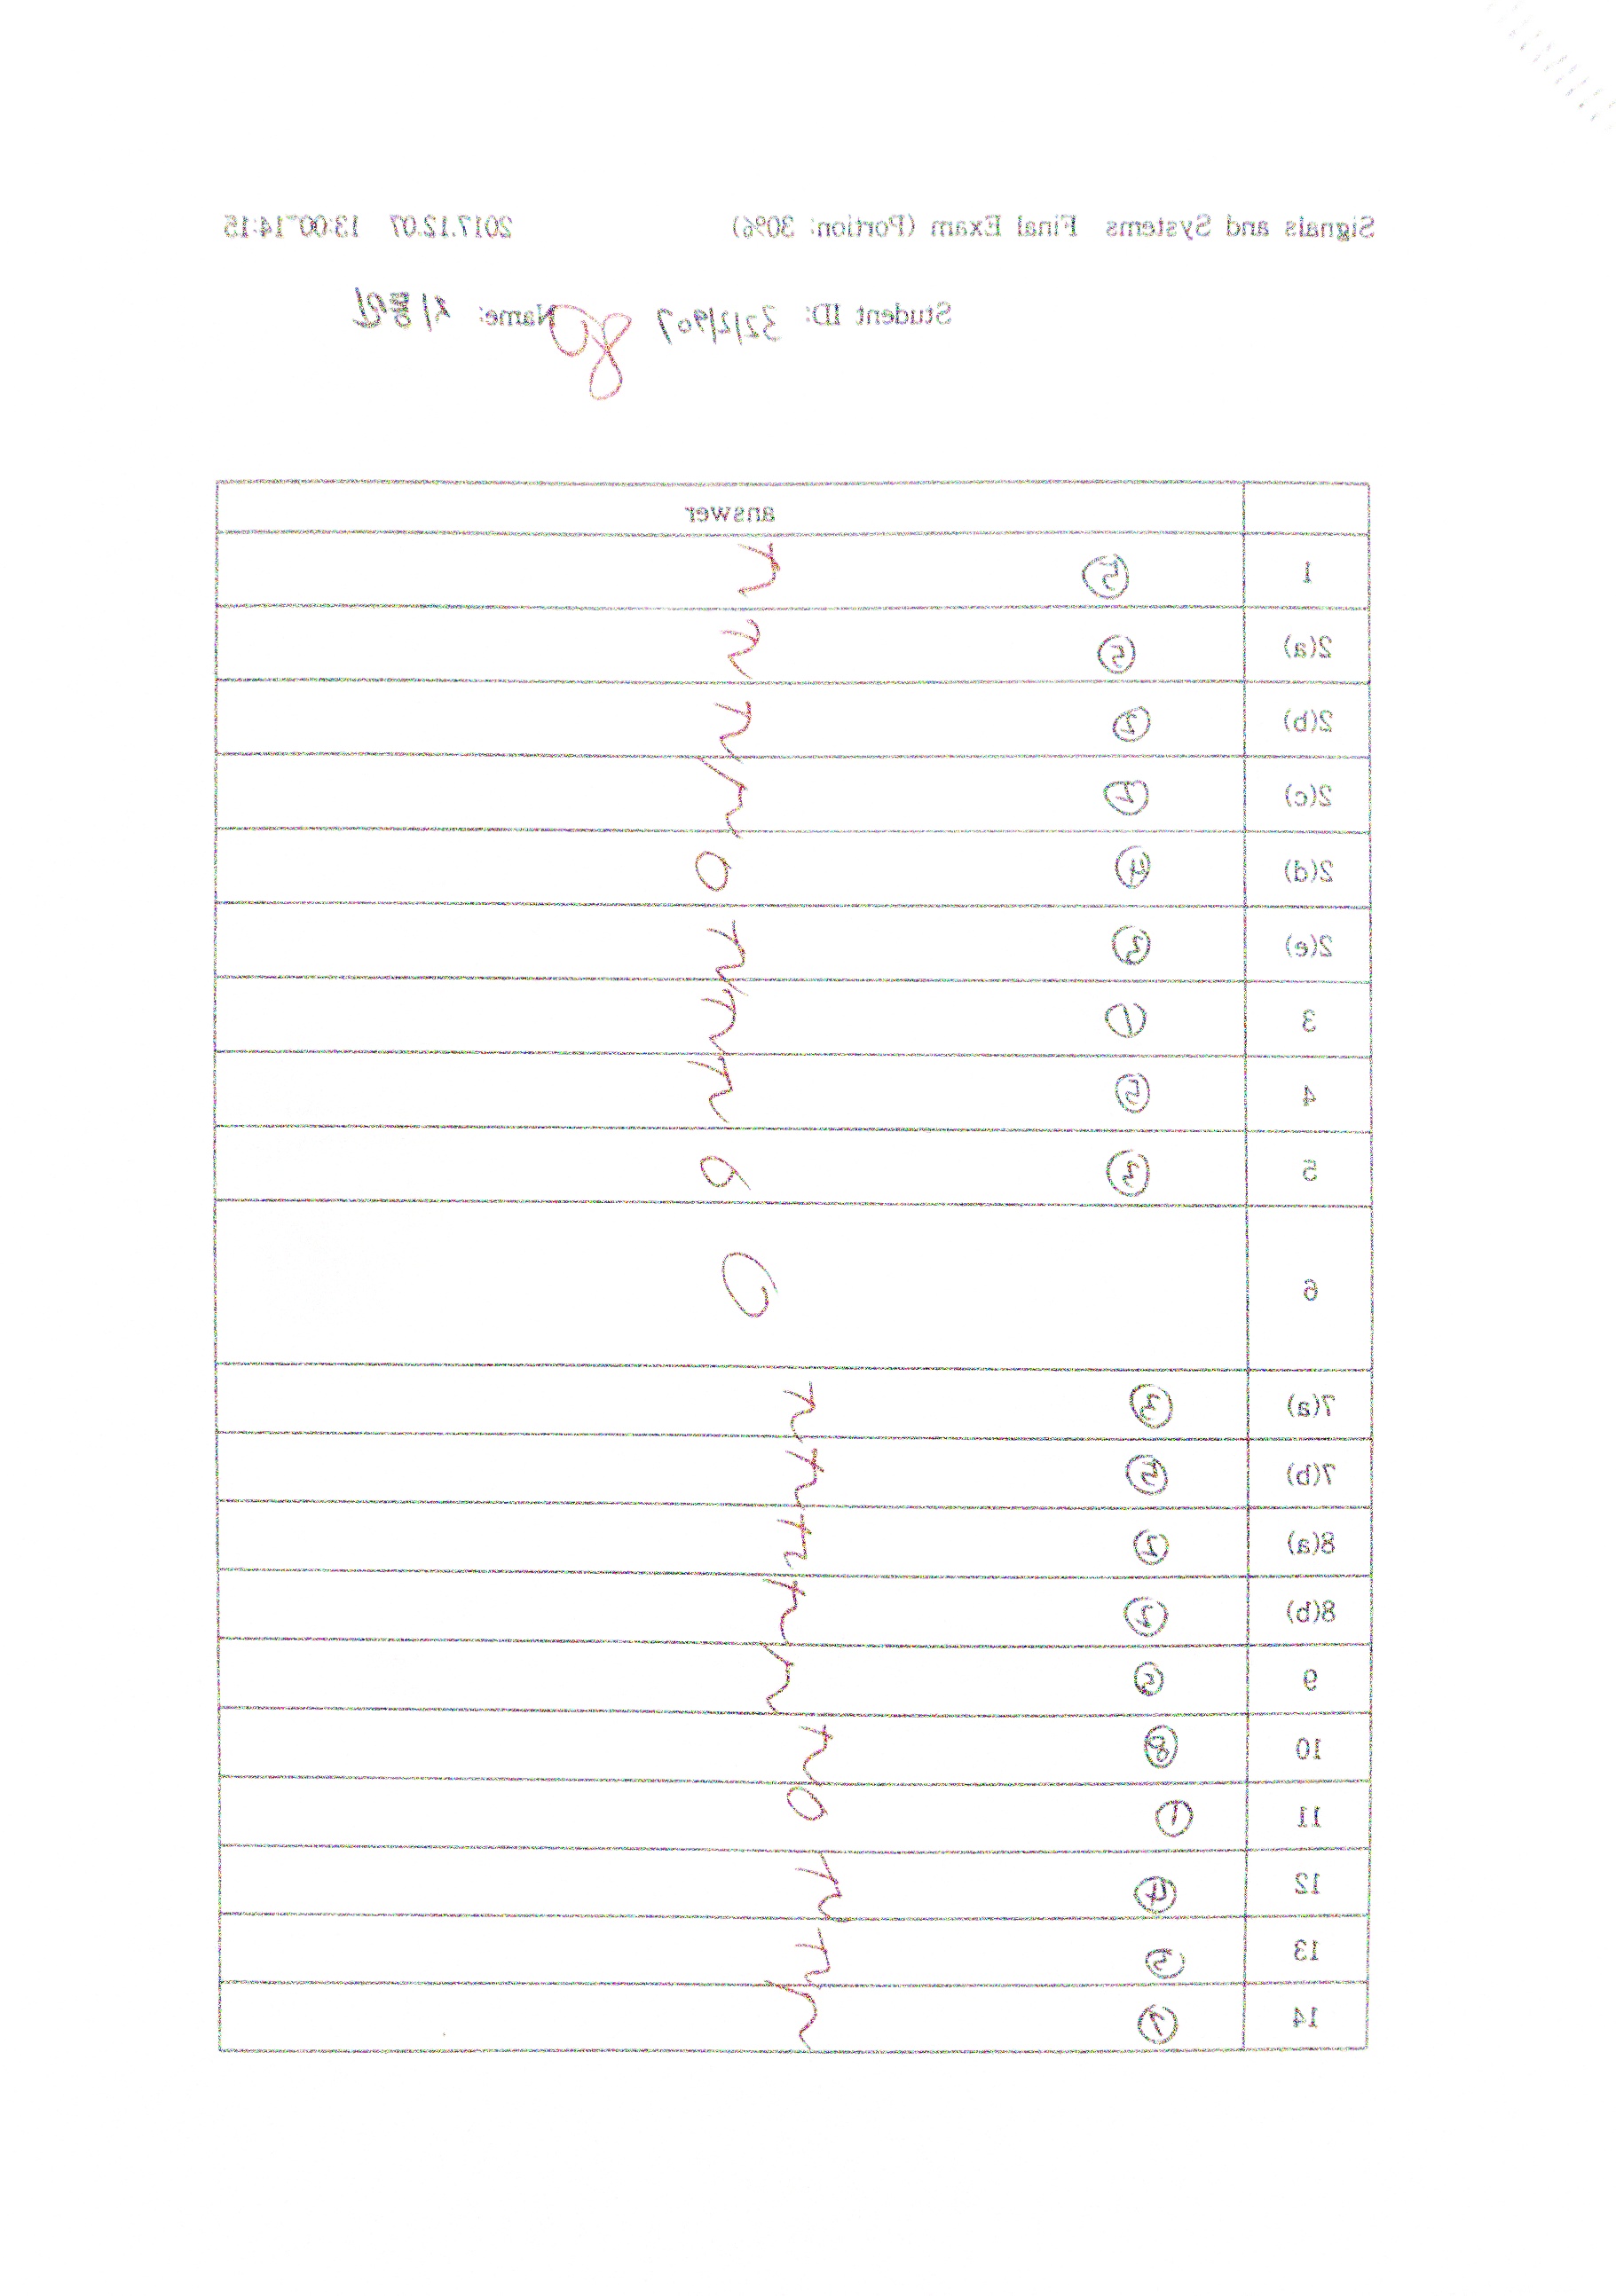 Signals and Systems Final Exam (Portion: 30%) 2017.12.07 13:00~14:15
Student ID: 32121907 Name:
80
answer
1 ⑤
2(a) ⑤
2(b) ②
2(c) ②
2(d) ④
2(e) ③
3 ①
4 ⑤
5 ③
6
7(a) ③
7(b) ⑤
8(a) ②
8(b) ②
9
10 ⑧
11 ①
12 ④
13
14 ⑦